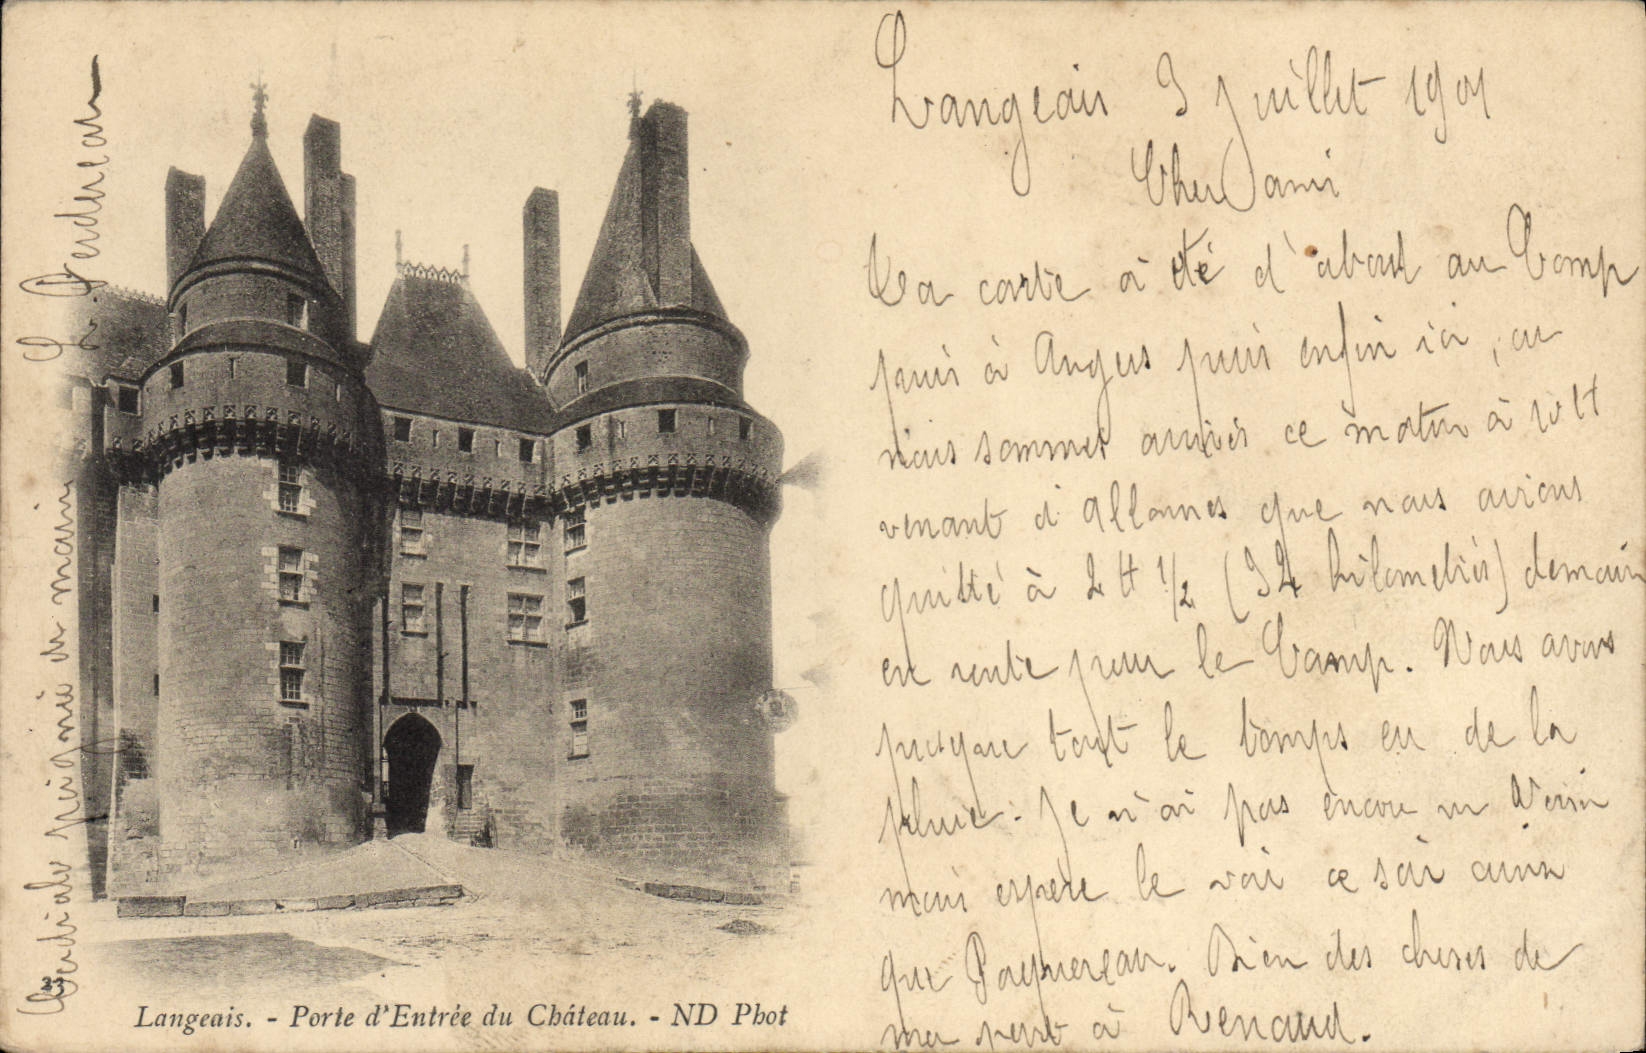 Langeais 3 Juillet 1901
Cher ami
Ta carte à été d'abord au Camp
puis à Angers puis enfin ici, car
nous sommes arrivés ce matin à 10 H
venant d'Allonnes que nous avions
quitté à 2 H 1/2 (32 kilomètrés) demain
en route pour le Camp. Nous avons
presque tout le temps eu de la
pluie. Je n'ai pas encore vu
mais espère le voir ce soir ainsi
que Paquereau. Bien des choses de
ma part à Renaud.
Cordiale poignée de main
Langeais. - Porte d'Entrée du Château. - ND Phot